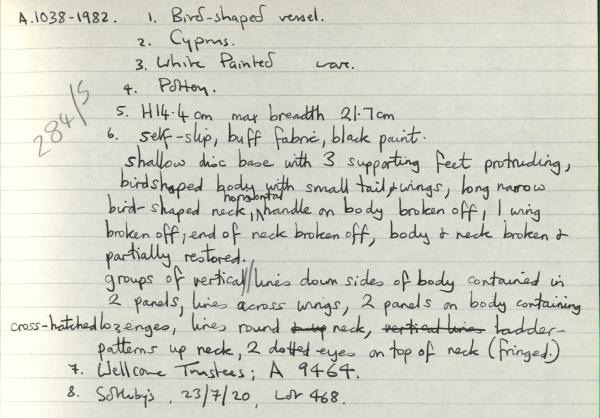 A.1038-1982. 1. Bird-shaped vessel.
2. Cyprus.
3. White Painted ware.
4. Pottery.
284/5
5. H14.4cm max breadth 21.7cm
6. self-slip, buff fabric, black paint.
shallow disc base with 3 supporting feet protruding,
birdshaped body with small tail & wings, long narrow
bird-shaped neck, horizontal handle on body broken off, 1 wing
broken off; end of neck broken off, body & neck broken &
partially restored.
groups of vertical lines down sides of body contained in
2 panels, lines across wings, 2 panels on body containing
cross-hatched lozenges, lines round & up neck, vertical lines ladder-
patterns up neck, 2 dotted eyes on top of neck (fringed.)
7. Wellcome Trustees; A 9464.
8. Sotheby's, 23/7/20, Lot 468.